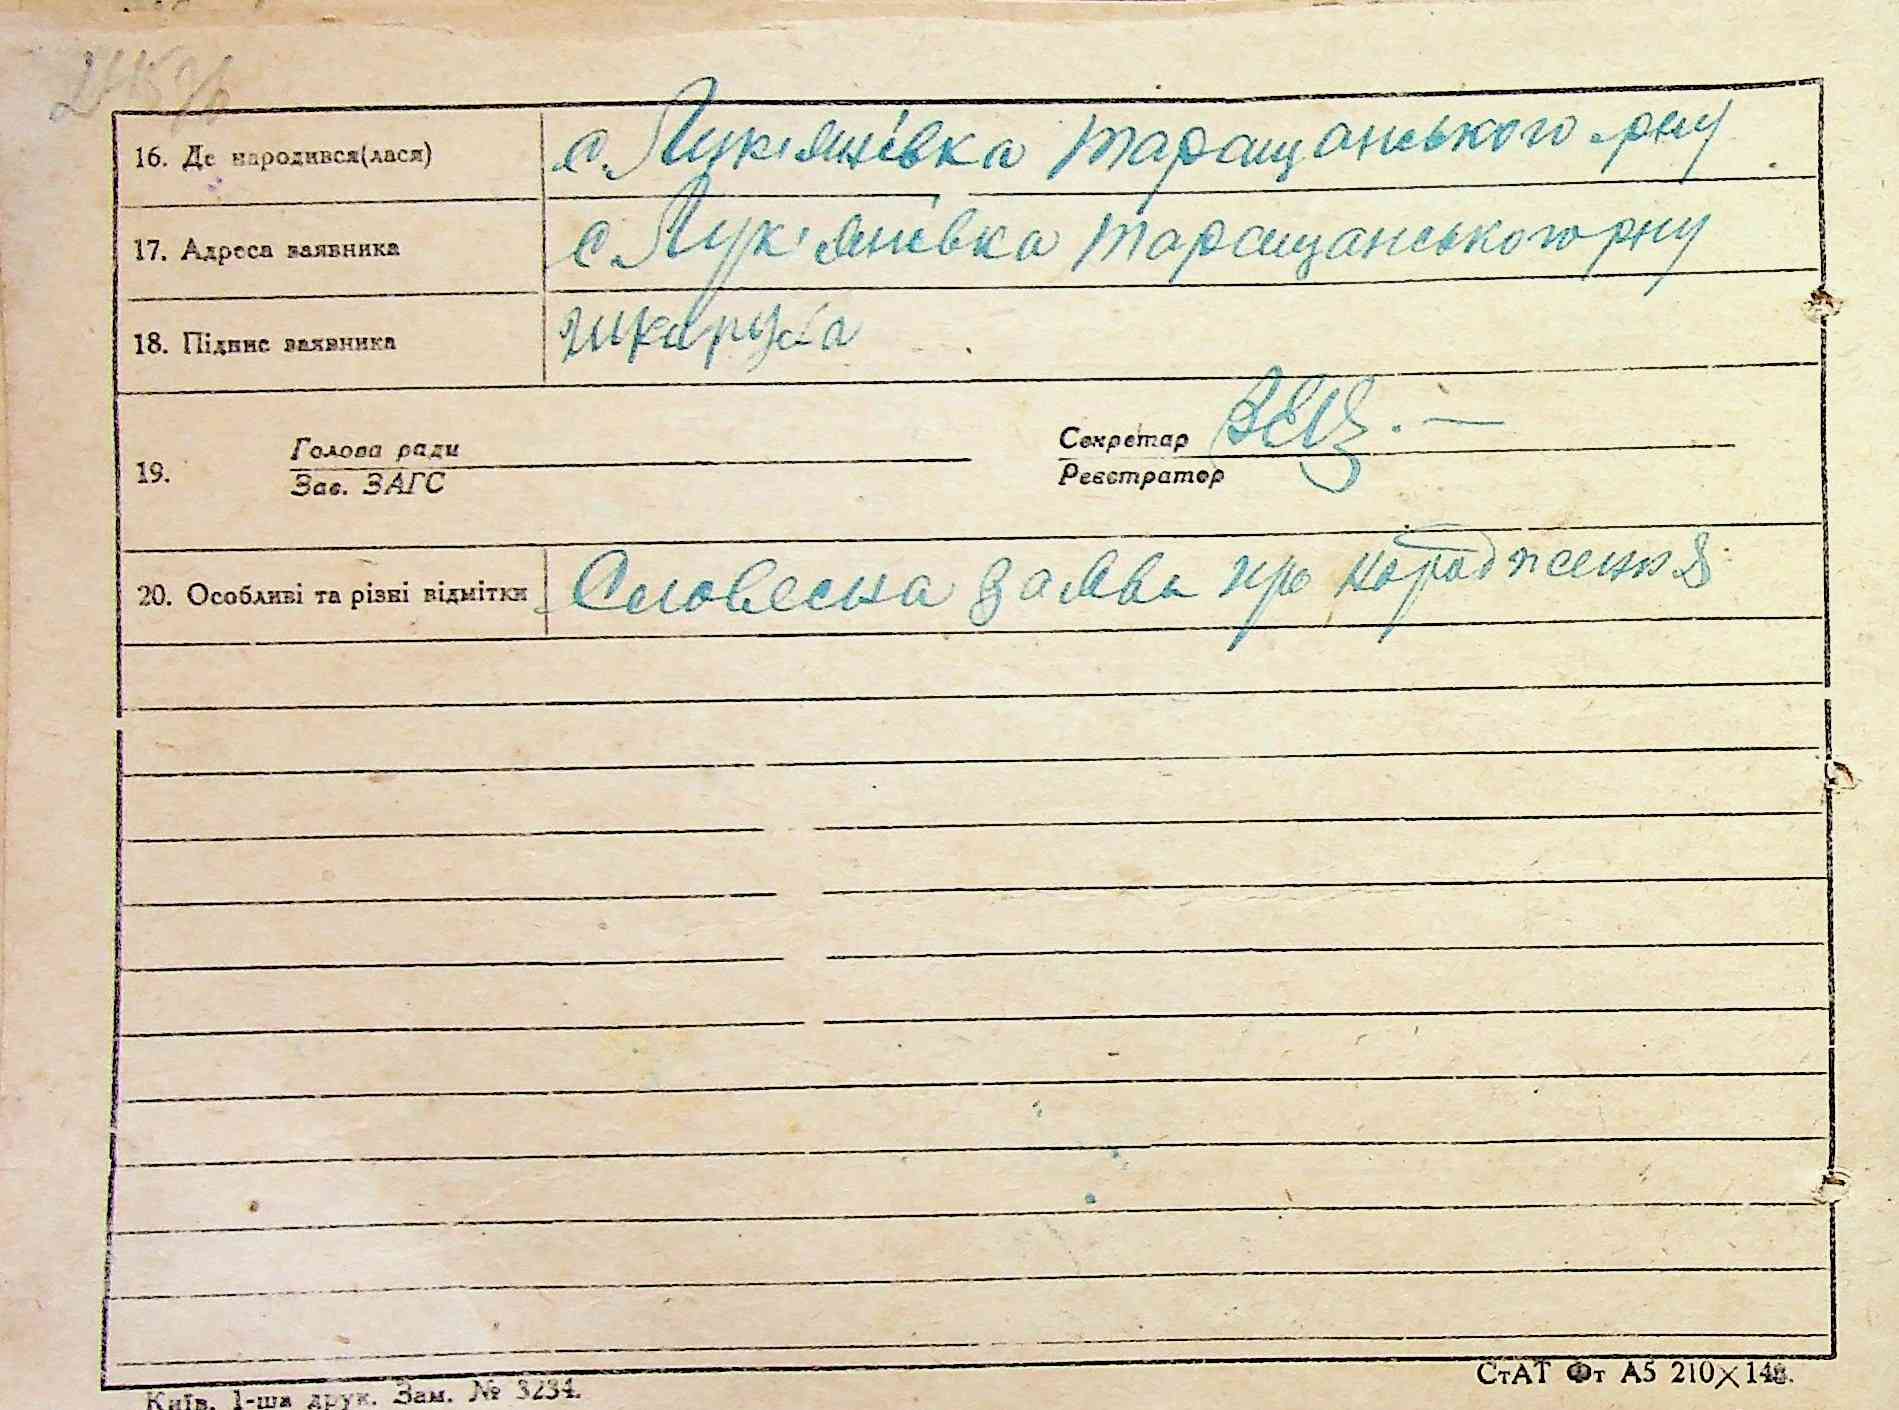 16. Де народився(лася) с. Лук'янівка Таращанського рну
17. Адреса заявника с Лук'янівка Таращанського рну
18. Підпис заявника
19. Голова ради
Зав. ЗАГС
Секретар
Реєстратор
20. Особливі та різні відмітки Словесна заява про народження
Київ. 1-ша друк. Зам. № 3234.
СтАТ Фт А5 210×148.